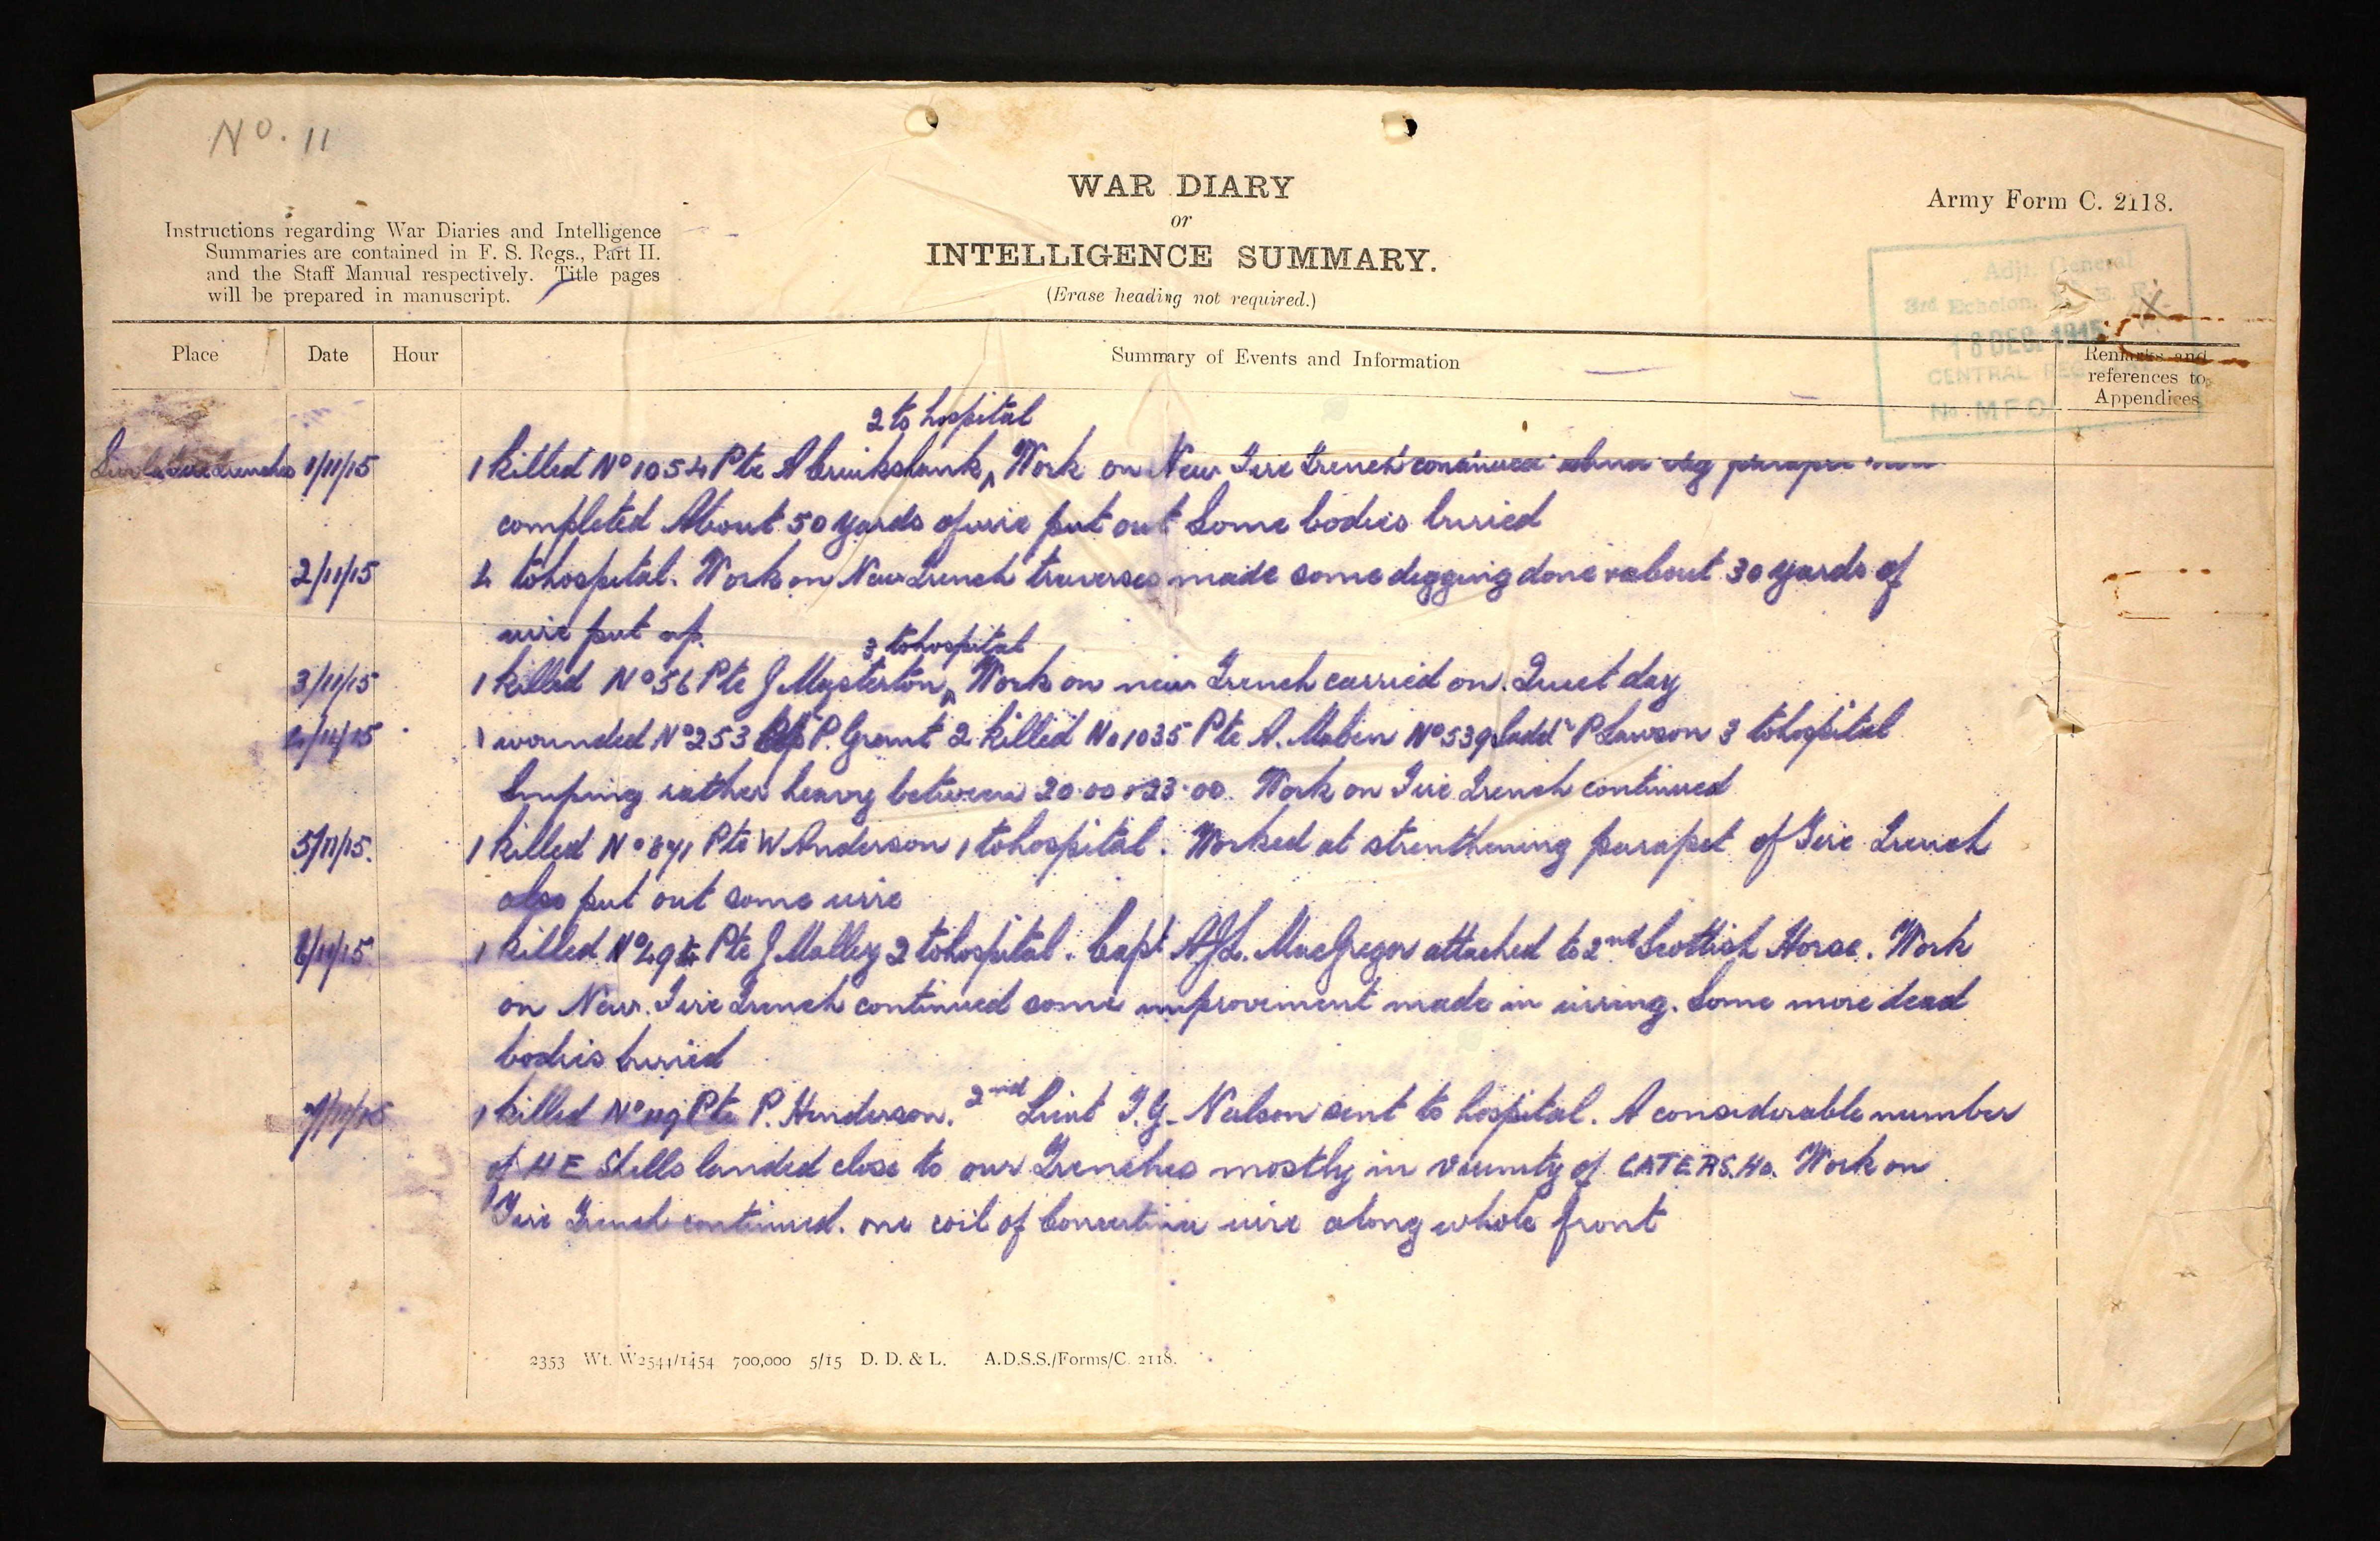 No. 11
WAR DIARY
or
INTELLIGENCE SUMMARY.
(Erase heading not required.)
Army Form C. 2118.
Instructions regarding War Diaries and Intelligence
Summaries are contained in F. S. Regs., Part II.
and the Staff Manual respectively. Title pages
will be prepared in manuscript.
Adjt. General
3rd Echelon,
18 DEC. 1915
CENTRAL REG
No. MFO
Place Date Hour Summary of Events and Information Remarks and
references to
Appendices
2 to hospital
1/11/15 1 killed No 1054 Pte A Cruikshank, Work on New Fire Trench continued
completed About 50 yards of wire put out Some bodies buried
2/11/15 4 to hospital. Work on New Trench traverses made some digging done & about 30 yards of
wire put up.
3 to hospital
3/11/15 1 killed No 56 Pte J Mysterton, Work on new Trench carried on. Quiet day
4/11/15 1 wounded No 253 P. Grant 2 killed No 1035 Pte A. Maben No 539 Sadd P Lawson 3 to hospital
Sniping rather heavy between 20.00 & 23.00. Work on Fire Trench continued
5/11/15. 1 killed No 871 Pte W Anderson 1 to hospital. Worked at strenthening parapet of Fire Trench
also put out some wire
6/11/15 1 killed No 494 Pte J Malley 2 to hospital. Capt A.J.L. MacGregor attached to 2nd Scottish Horse. Work
on New. Fire Trench continued some improvement made in wiring. Some more dead
bodies buried
7/11/15 1 killed No 119 Pte P. Henderson. 2nd Lieut T.G. Neilson sent to hospital. A considerable number
of H E Shells landed close to our Trenches mostly in vicinity of CATERS. Ho. Work on
Fire Trench continued. one coil of Concertina wire along whole front
2353 Wt. W2544/1454 700,000 5/15 D. D. & L. A.D.S.S./Forms/C. 2118.